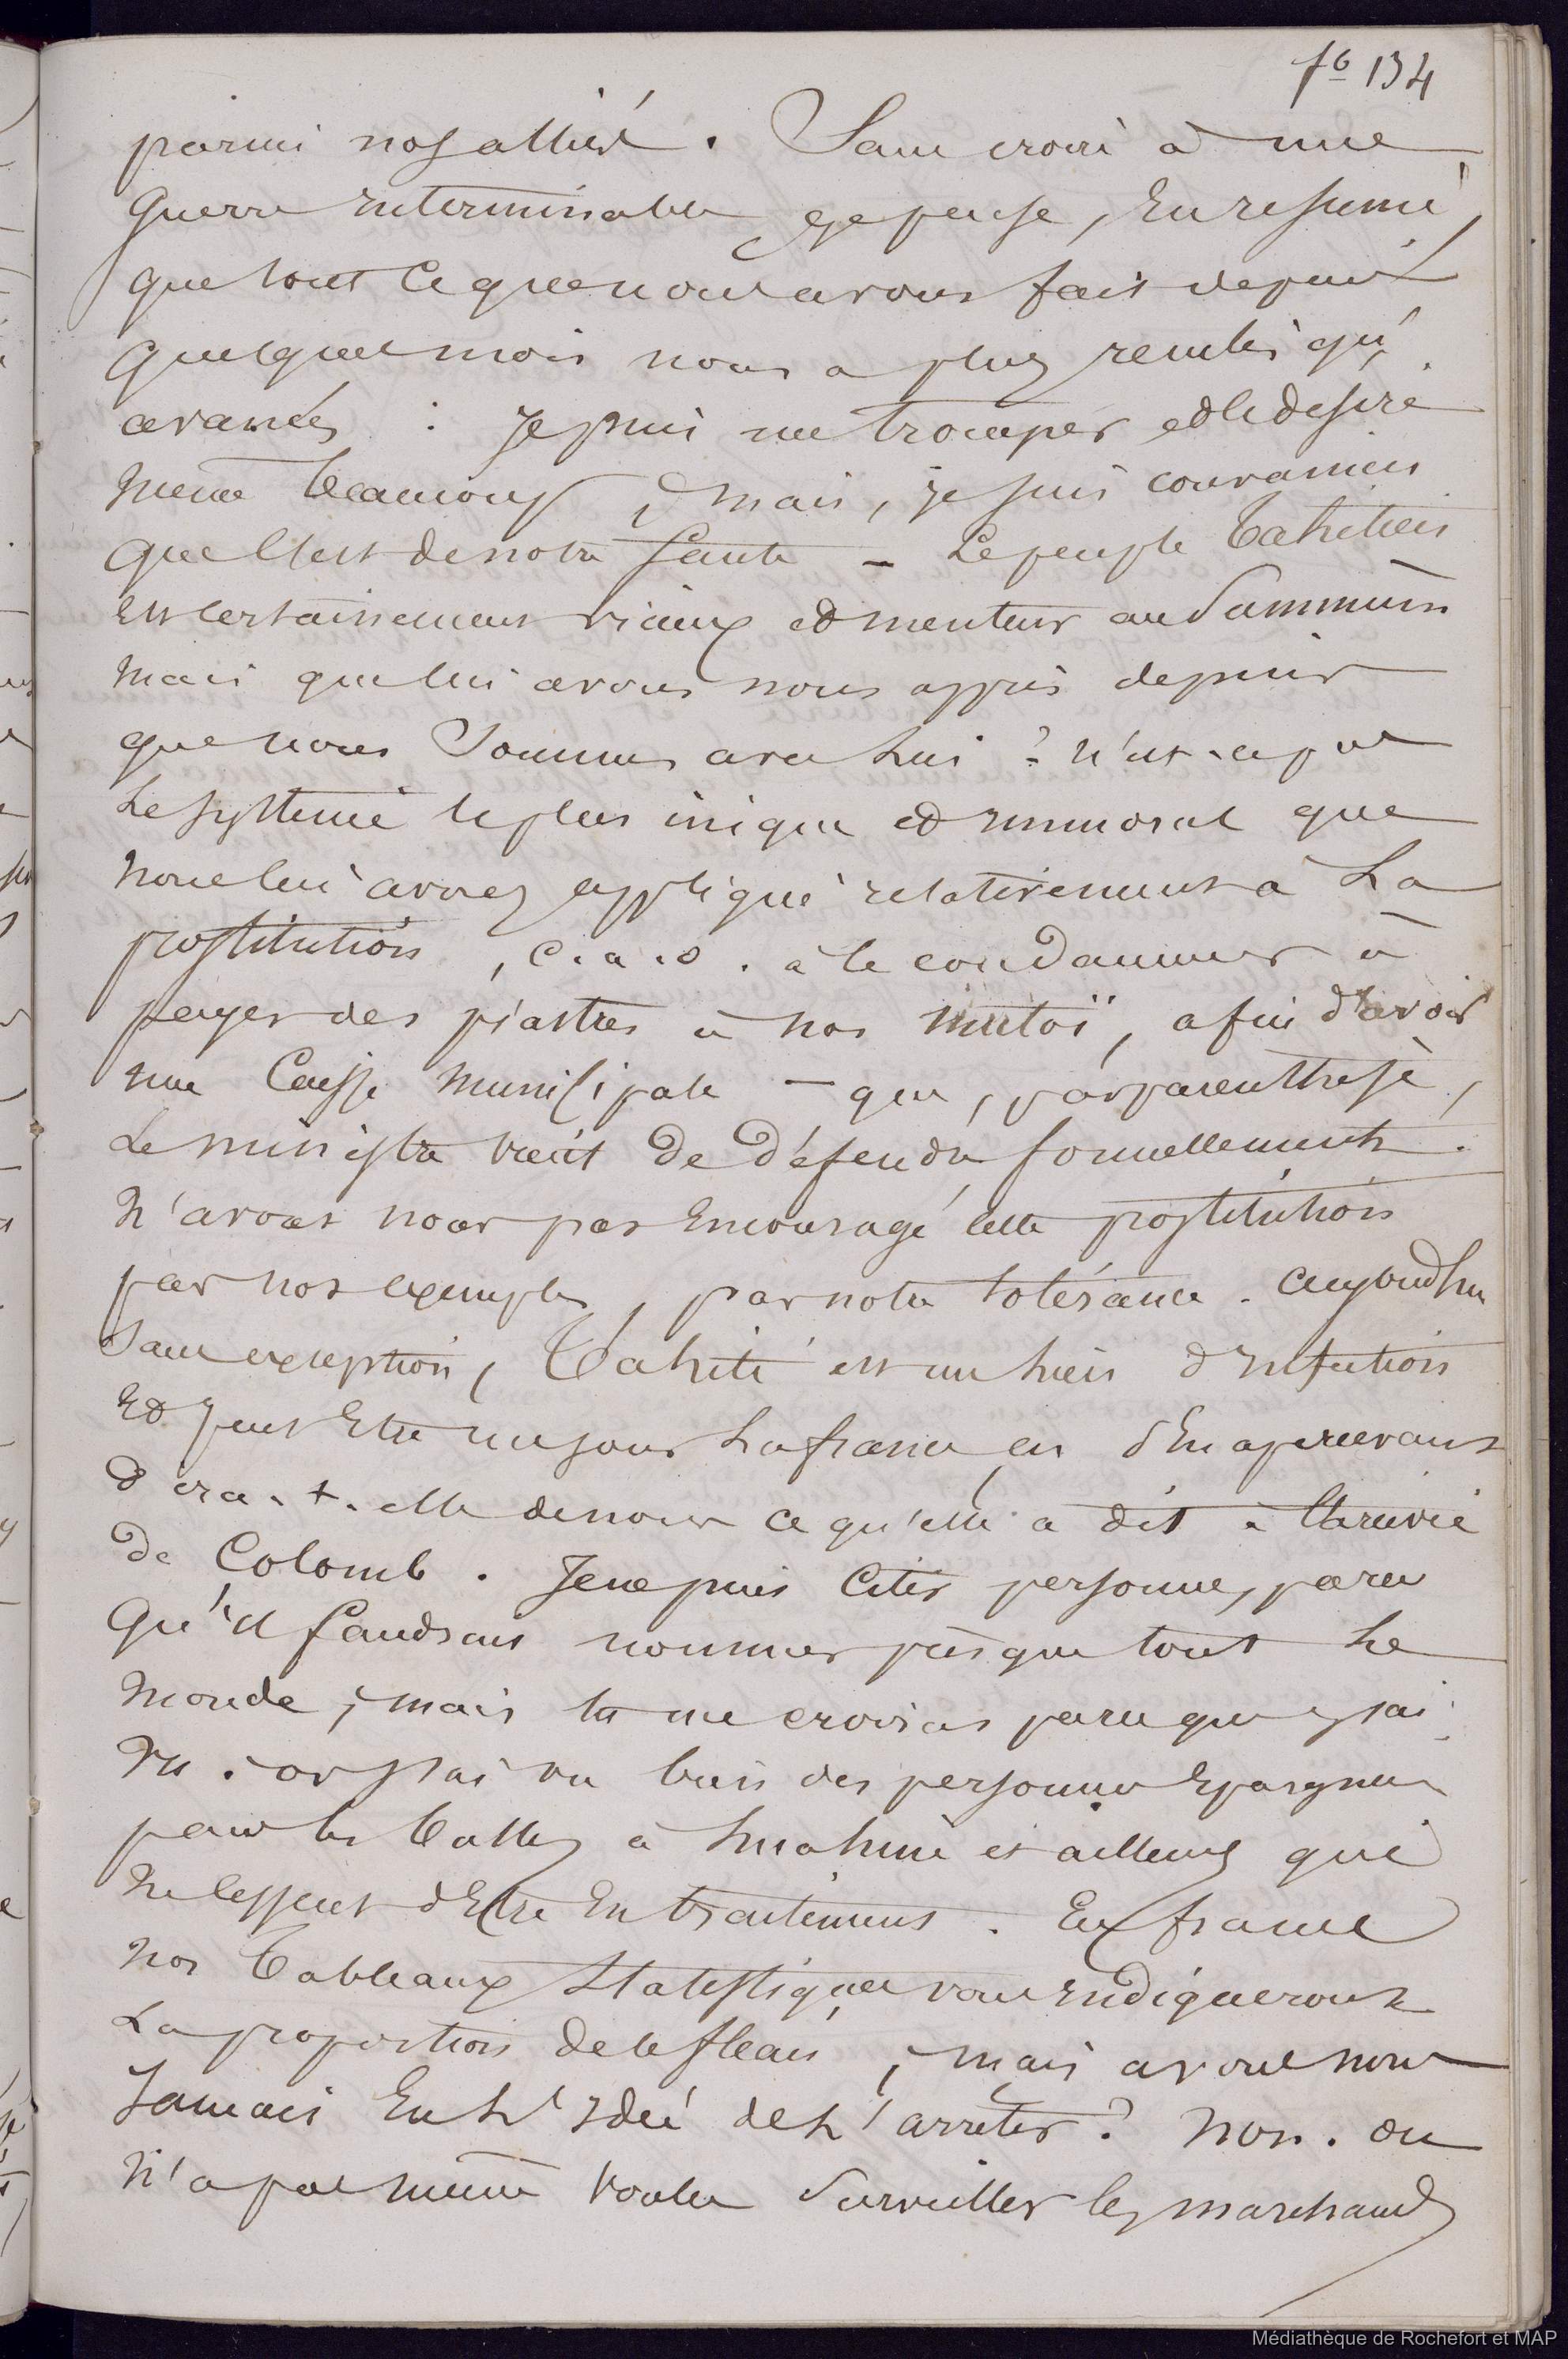 fo 134
parmi nos alliés. Sans croire à une
Guerre interminable je pense, En resumé,
que tout Ce que nous avons fait depuis
quelques mois nous a plus reculés qu'
avancés : Je puis me tromper et le desire
meme beaucoup, mais, je suis convaincu
que C'est de notre faute - Le peuple Tahitien
Est certainement vicieux et menteur au Summum
mais que lui avons nous appris depuis
que nous Sommes avec Lui ? n'est-ce pas
Le système le plus inique et immoral que
nous lui avons appliqué relativement à La
prostitution, c.a.d. à le condamner à
payer des piastres à nos mutoï, afin d'avoir
une Caisse municipale - que, par parenthese,
Le ministre vient De Défendre formellement.
N'avons nous pas Encouragé cette prostitution
par nos exemples, par notre tolérance. aujourd'hui
Sans exception, Tahiti est un lieu d'infection
Et peut Etre un jour La france en s'En apercevant
Dira.t.elle de nous ce qu'elle a dit à l'armée
de Colomb. Je ne puis Citer personne, parce
qu'il faudrait nommer presque tout Le
monde, mais tu me croiras parce que j'ai
vu. or j'ai vu bien des personnes Epargnées
par les balles à huahine et ailleurs qui
ne cessent d'Etre En traitement. En france
nos Tableaux Statistiques vous indiqueront
La proportion de ce fléau, mais avons nous
Jamais Eu L'idée de L'arreter ? non. on
N'a pas même voulu Surveiller les marchands
Médiathèque de Rochefort et MAP